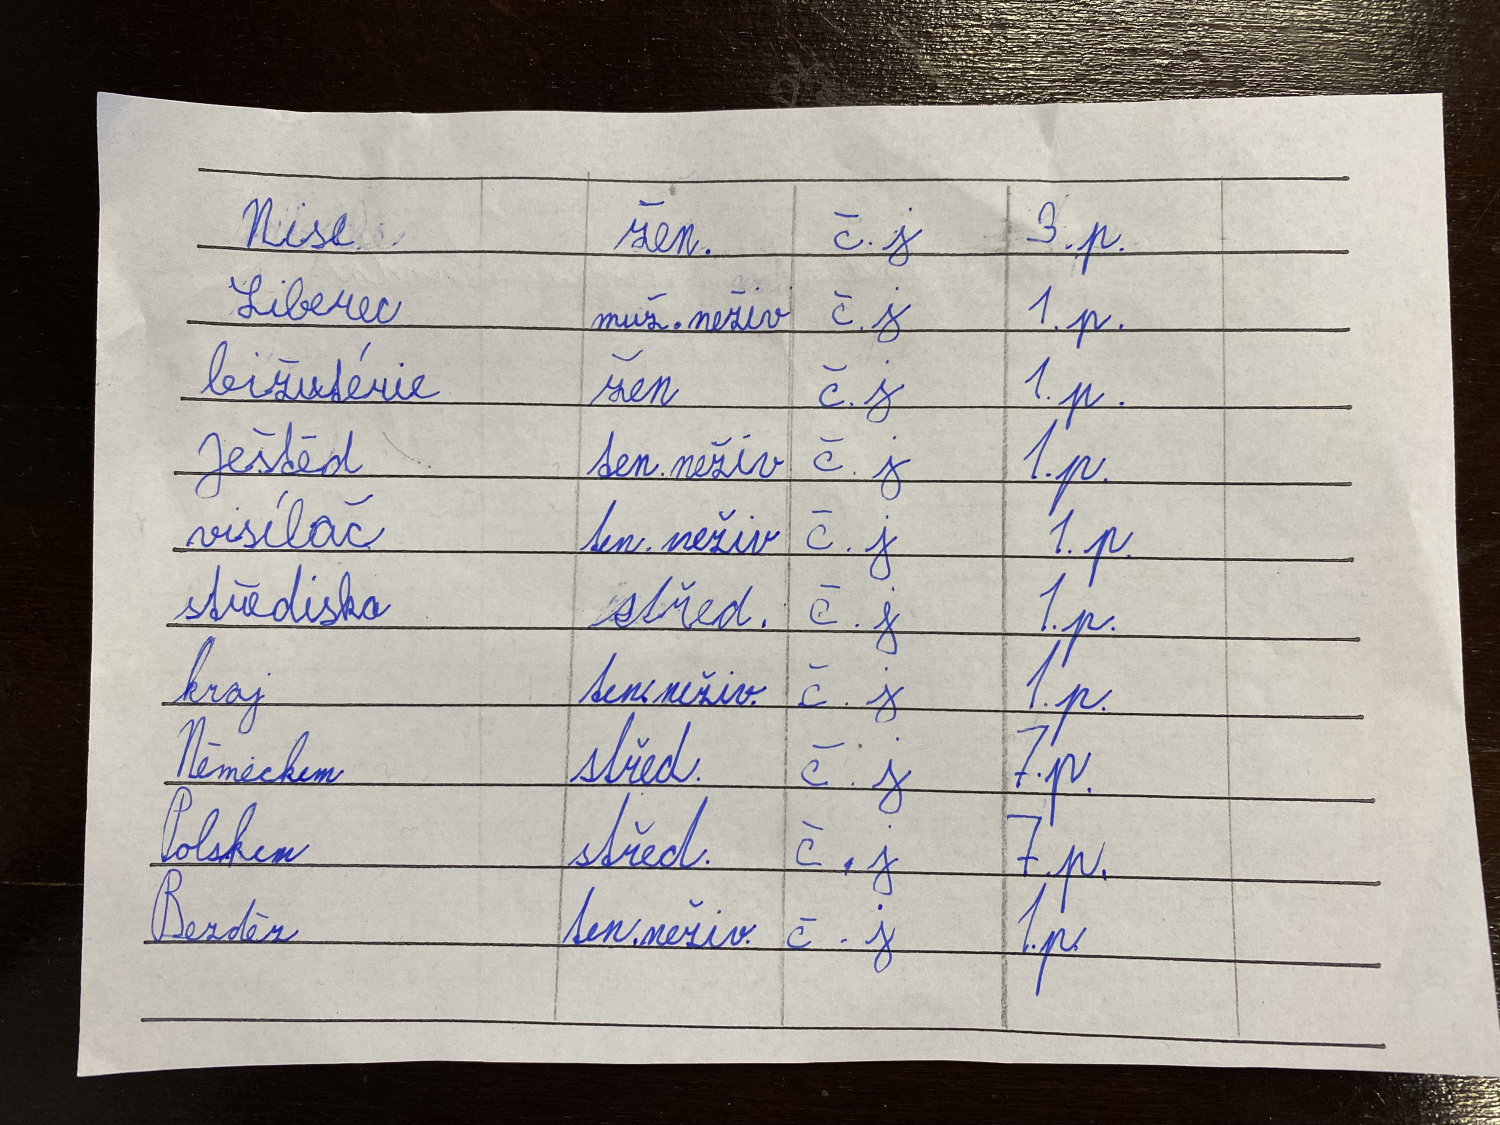 Nise žen. č. j 3. p.
Liberec muž. neživ č. j 1. p.
bižutérie žen č. j 1. p.
Ještěd ten. neživ č. j 1. p.
visíláč ten. neživ č. j 1. p.
střediska střed. č. j 1. p.
kraj ten. neživ. č. j 1. p.
Némeckem střed. č. j 7. p.
Polskem střed. č. j 7. p.
Bezděz ten. neživ. č. j 1. p.